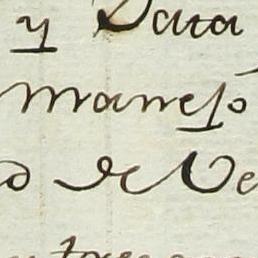 y Para
manejo
o de Ve